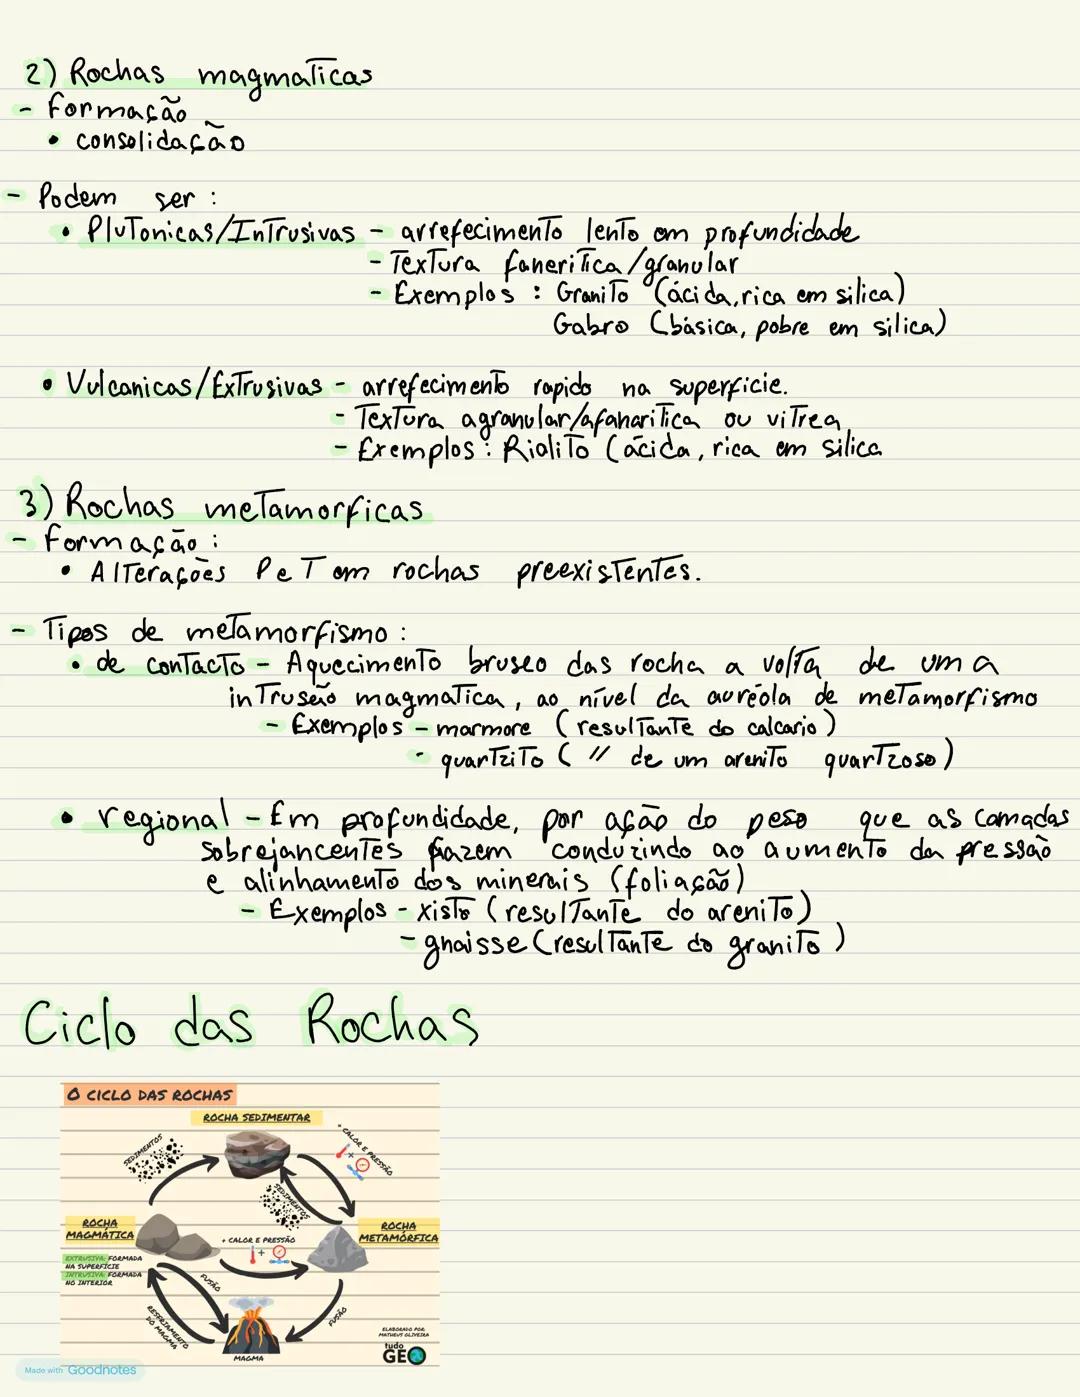 2) Rochas magmaticas
- formação
• consolidação
- Podem ser :
• Plutonicas/Intrusivas - arrefecimento lento em profundidade
- Textura faneritica/granular
- Exemplos : Granito (ácida, rica em silica)
Gabro (básica, pobre em silica)
• Vulcanicas/Extrusivas - arrefecimento rapido na superficie.
- Textura agranular/afanaritica ou vitrea
- Exemplos : Riolito (ácida, rica em silica
3) Rochas metamorficas
- formação :
• Alterações P e T em rochas preexistentes.
- Tipos de metamorfismo :
• de contacto - Aquecimento brusco das rocha a volta de uma
intrusão magmatica, ao nível da auréola de metamorfismo
- Exemplos - marmore (resultante do calcario)
- quartzito ( // de um arenito quartzoso)
• regional - Em profundidade, por ação do peso que as camadas
sobrejancentes fazem conduzindo ao aumento da pressão
e alinhamento dos minerais (foliação)
- Exemplos - xisto (resultante do arenito)
- gnaisse (resultante do granito)
Ciclo das Rochas
O CICLO DAS ROCHAS
ROCHA SEDIMENTAR
SEDIMENTOS
+ CALOR E PRESSÃO
SEDIMENTOS
ROCHA
MAGMÁTICA
ROCHA
METAMÓRFICA
+ CALOR E PRESSÃO
EXTRUSIVA: FORMADA
NA SUPERFÍCIE
INTRUSIVA: FORMADA
NO INTERIOR
FUSÃO
RESFRIAMENTO
DO MAGMA
FUSÃO
MAGMA
ELABORADO POR:
MATHEUS OLIVEIRA
tudo
GEO
Made with Goodnotes